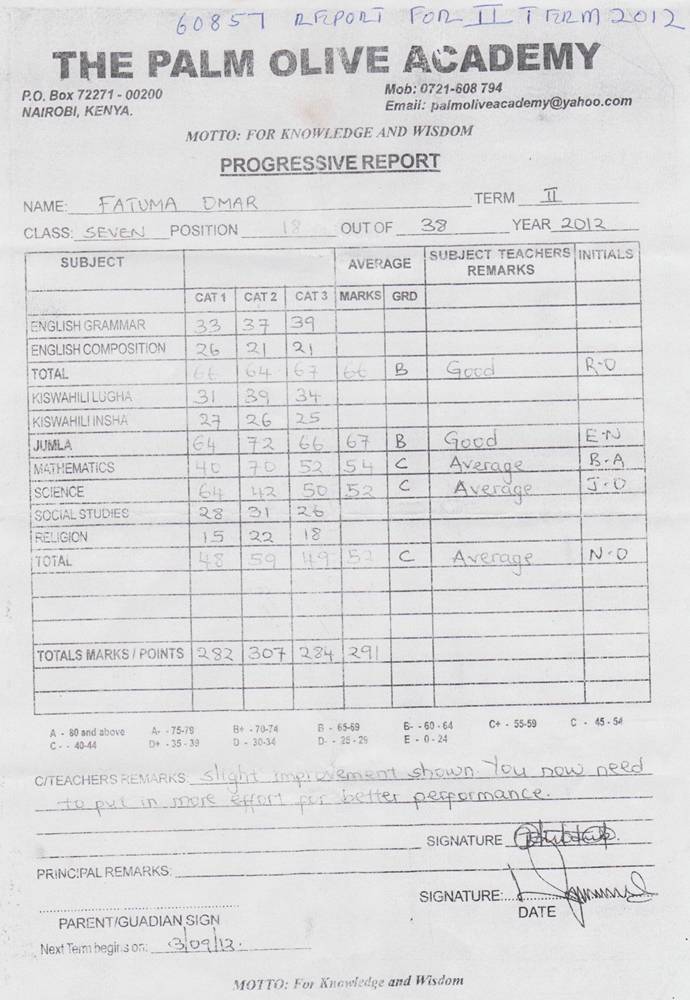 60857 REPORT FOR II TERM 2012
THE PALM OLIVE ACADEMY
P.O. Box 72271 - 00200
NAIROBI, KENYA.
Mob: 0721-608 794
Email: palmoliveacademy@yahoo.com
MOTTO: FOR KNOWLEDGE AND WISDOM
PROGRESSIVE REPORT
NAME: FATUMA OMAR TERM II
CLASS: SEVEN POSITION 18 OUT OF 38 YEAR 2012
SUBJECT AVERAGE SUBJECT TEACHERS REMARKS INITIALS
CAT 1 CAT 2 CAT 3 MARKS GRD
ENGLISH GRAMMAR 33 37 39
ENGLISH COMPOSITION 26 21 21
TOTAL 66 64 67 66 B Good R-O
KISWAHILI LUGHA 31 39 34
KISWAHILI INSHA 27 26 25
JUMLA 64 72 66 67 B Good E-N
MATHEMATICS 40 70 52 54 C Average B-A
SCIENCE 64 42 50 52 C Average J-O
SOCIAL STUDIES 28 31 26
RELIGION 15 22 18
TOTAL 48 59 49 52 C Average N-O
TOTALS MARKS / POINTS 282 307 284 291
A - 80 and above A- - 75-79 B+ - 70-74 B - 65-69 B- - 60 - 64 C+ - 55-59 C - 45-54
C- - 40-44 D+ - 35-39 D - 30-34 D- - 25-29 E - 0-24
C/TEACHERS REMARKS: slight improvement shown. You now need
to put in more effort for better performance.
SIGNATURE
PRINCIPAL REMARKS:
SIGNATURE:
DATE
PARENT/GUADIAN SIGN
Next Term begins on: 3/09/12.
MOTTO: For Knowledge and Wisdom